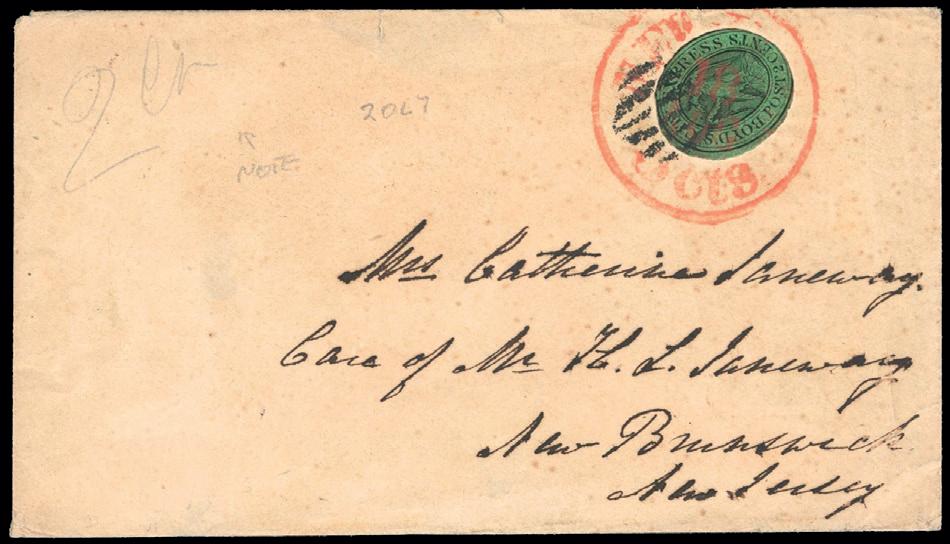 2
20L7
NOTE
BOYD'S CITY EXPRESS POST 2 CENTS
18
5 cts
Mrs Catherine Janeway.
Care of Mr H. L. Janeway
New Brunswick
New Jersey